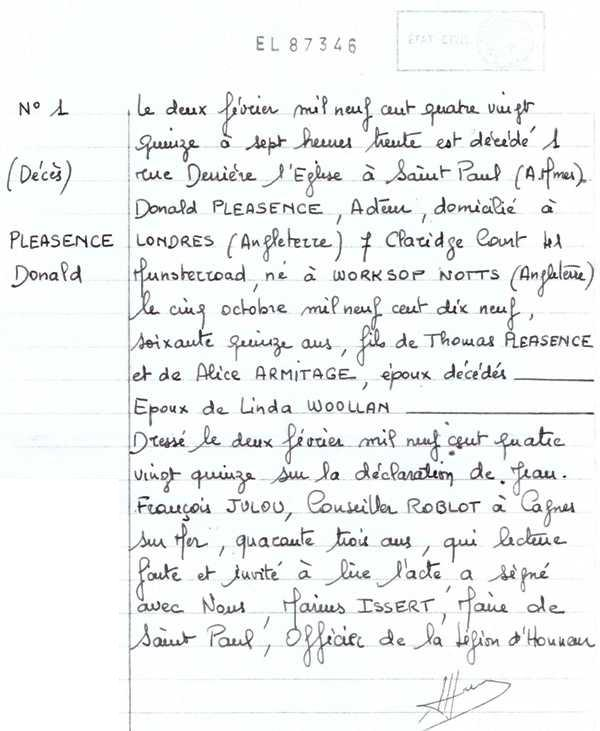 EL 87346
ETAT CIVIL
N° 1
(Décès)
PLEASENCE
Donald
Le deux février mil neuf cent quatre vingt
quinze à sept heures trente est décédé 1
rue Derrière l'Eglise à Saint Paul (A.Mmes)
Donald PLEASENCE, Acteur, domicilié à
LONDRES (Angleterre) 7 Claridge Court
Munsterroad, né à WORKSOP NOTTS (Angleterre)
le cinq octobre mil neuf cent dix neuf,
soixante quinze ans, fils de Thomas PLEASENCE
et de Alice ARMITAGE, époux décédés
Epoux de Linda WOOLLAN
Dressé le deux février mil neuf cent quatre
vingt quinze sur la déclaration de Jean.
François JULOU, Conseiller ROBLOT à Cagnes
sur Mer, quarante trois ans, qui lecture
faite et invité à lire l'acte, a signé
avec Nous, Marius ISSERT, Maire de
Saint Paul, Officier de la Légion d'Honneur